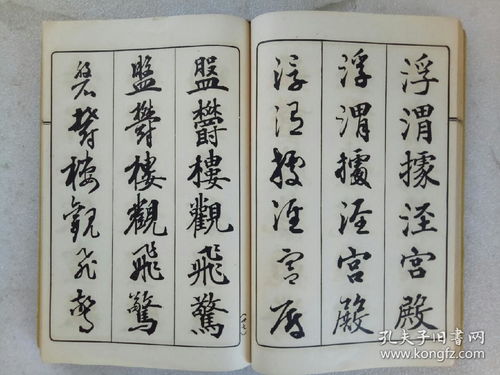 浮渭據涇宮殿
浮渭據涇宮殿
浮渭據涇宮殿
盤鬱樓觀飛驚
盤鬱樓觀飛驚
盤鬱樓觀飛驚
孔夫子旧书网
www.kongfz.com